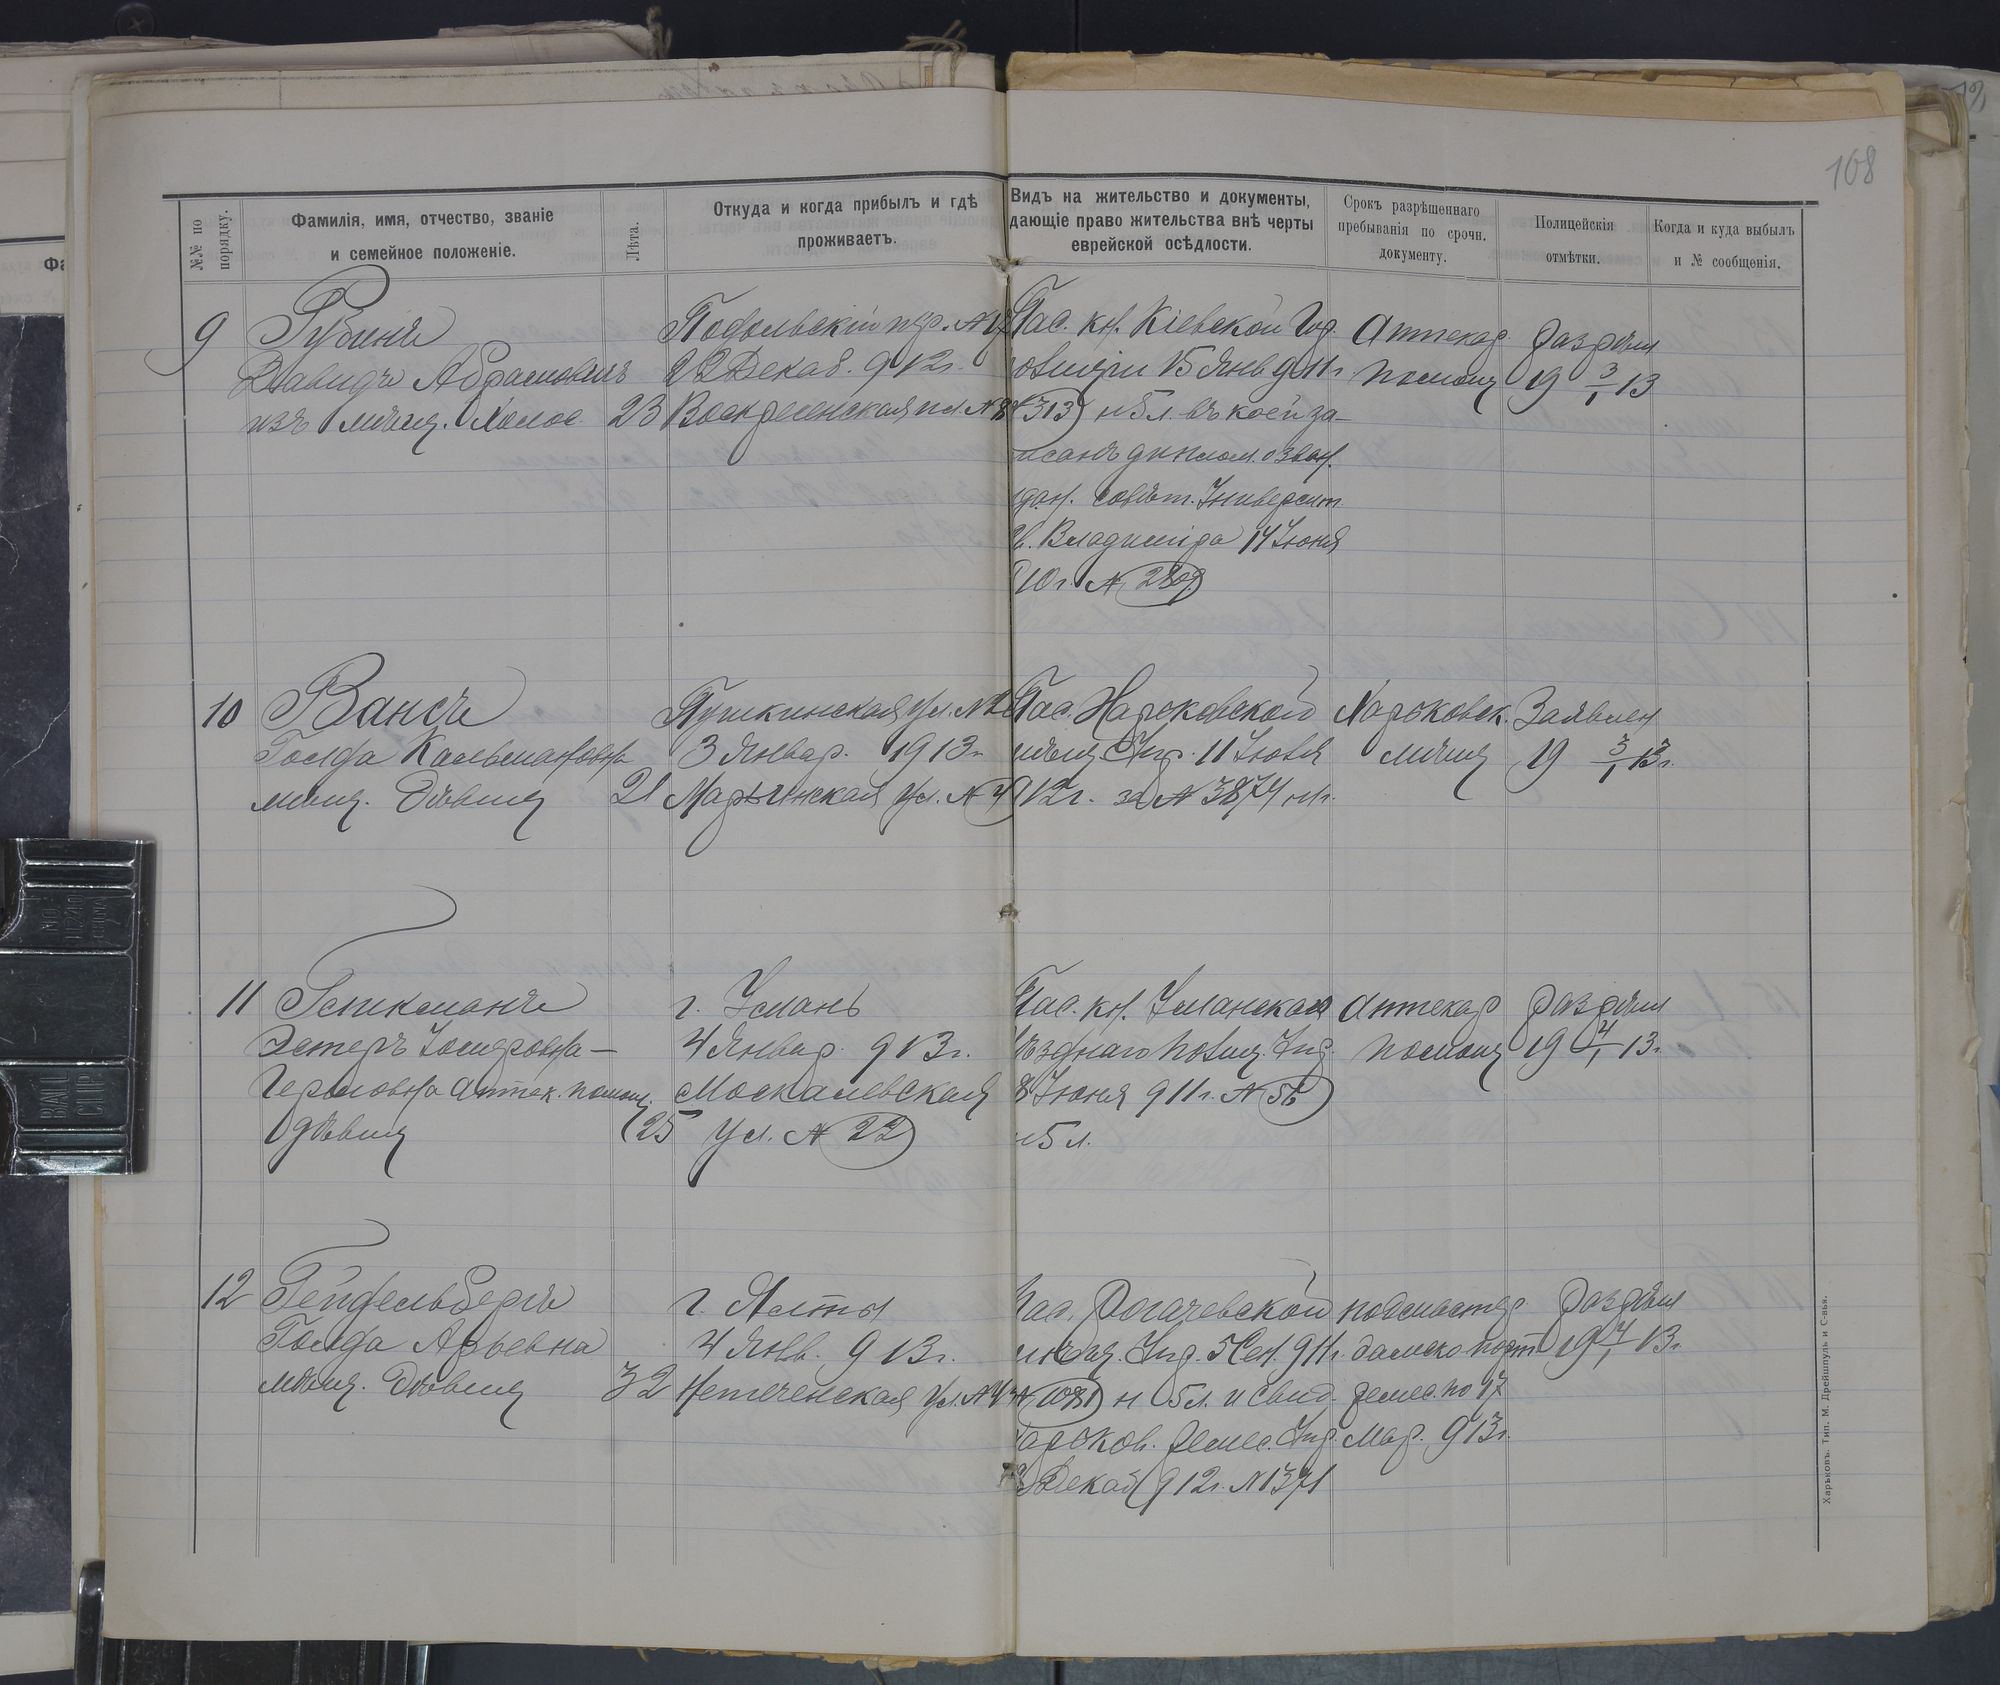 108
№№ по порядку.
Фамилія, имя, отчество, званіе
и семейное положеніе.
Лѣта.
Откуда и когда прибылъ и гдѣ
проживаетъ.
Видъ на жительство и документы,
дающіе право жительства внѣ черты
еврейской осѣдлости.
Срокъ разрѣшеннаго
пребыванія по срочн.
документу.
Полицейскія
отмѣтки.
Когда и куда выбылъ
и № сообщенія.
9
Рубинъ
Давидъ Абрамовичъ
изъ мѣщ. холос. 23
Подольскій пер. №
22 Декаб. 912г.
Воскресенская пл. № 8
Пас. кн. Кіевской Гор.
15 Янв 911г.
313 н 5 л. въ коей за-
писанъ диплом. о зван.
совѣт. Университ.
Св. Владиміра 14 Іюня
910г. №
Аптекар.
помощ
Раздѣл
19 3/1 13
10
Вансъ
Голда Кальмановна
мѣщ. Дѣвица 21
Пушкинская ул. №
3 Январ. 1913г.
Марьинская ул. №
Пас. Харьковской
мѣщ. Упр. 11 Іюля
912г. за № 3874 н 1г.
Харьковск.
мѣщ
Заявлен
19 3/1 13г.
11
Эстеръ
аптек. помощ.
дѣвица 25
г. Умань
4 Январ. 913г.
Москалевская
ул. № 22
Пас. кн. Уманская
Уѣзднаго Полиц. Упр.
8 Іюня 911г. №
н 5 л.
Аптекар
помощ
Раздѣл
19 4/1 13г.
12
Гейдельбергъ
Голда Арьевна
мѣщ. Дѣвица 32
г. Ялты
4 Янв. 913г.
Нетеченская ул. №
Пас. Рогачевской
мѣщ. Упр. 5 Сен. 911г.
№ н 5 л. и Свид.
Харьков. Ремес. Упр.
Декаб 912г. № 1371
подмастер.
дамско порт
ремес. по 17
Мар. 913г.
Раздѣл
19 4/1 13г.
Харьковъ. Тип. М. Дрейшпуль и С-вья.
NO.
11240
CHINA
BALL
CLIP